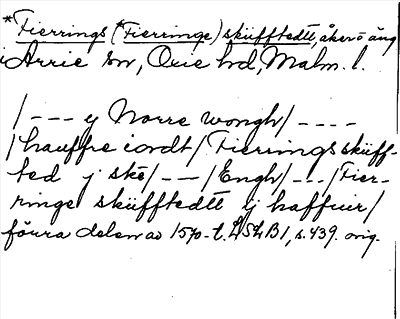 *Fierrings (*Fierringe) sküfftedtt, åker o äng
i Arrie sn, Oxie hd, Malm. l.
/--- y Norre wongh/ ----
/hauffre iordt/ Fierrings skúff-
ted y ske/ -- /Engh/ --- /Fier-
ringe skúfftedtt y haffuer/
förra delen av 1570-t. LSLB1, s. 439. orig.